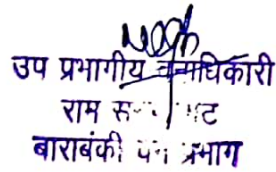 उप प्रभागीय वनाधिकारी
राम
बाराबंकी वन प्रभाग